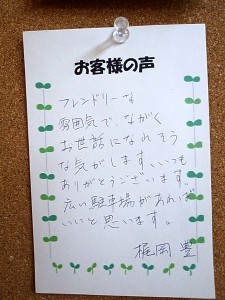 お客様の声
フレンドリーな
雰囲気で、ながく
お世話になれそう
な気がします。いつも
ありがとうございます。
広い駐車場があれば
いいと思います。
梶岡 豊